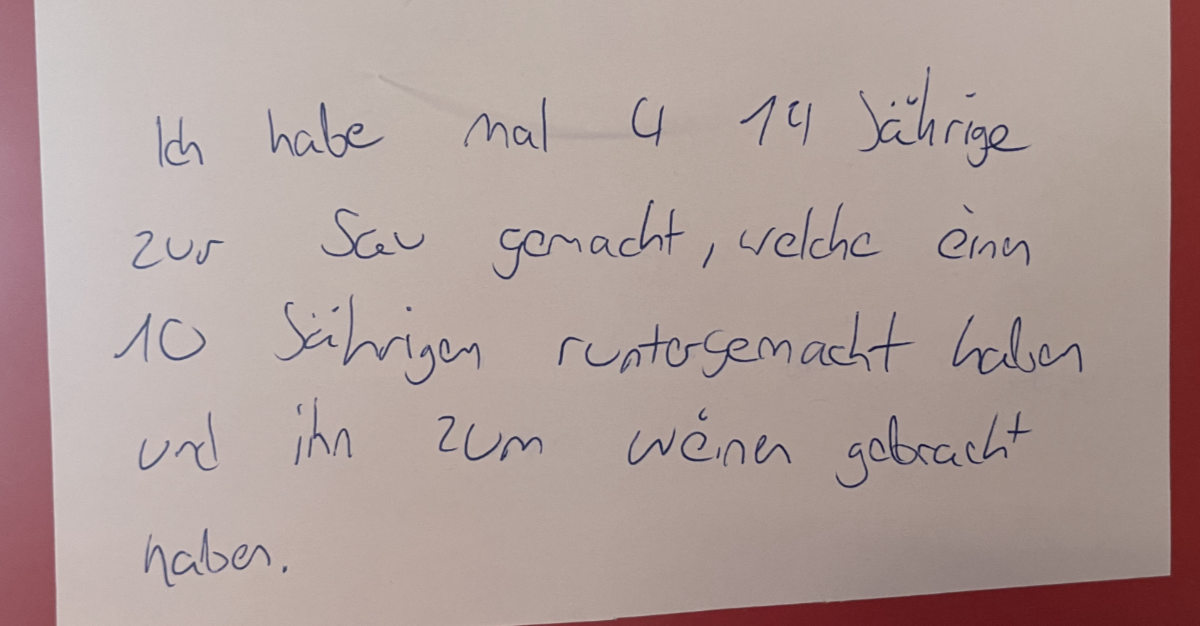 Ich habe mal 4 14 Jährige
zur Sau gemacht, welche einen
10 Jährigen runtergemacht haben
und ihn zum weinen gebracht
haben.